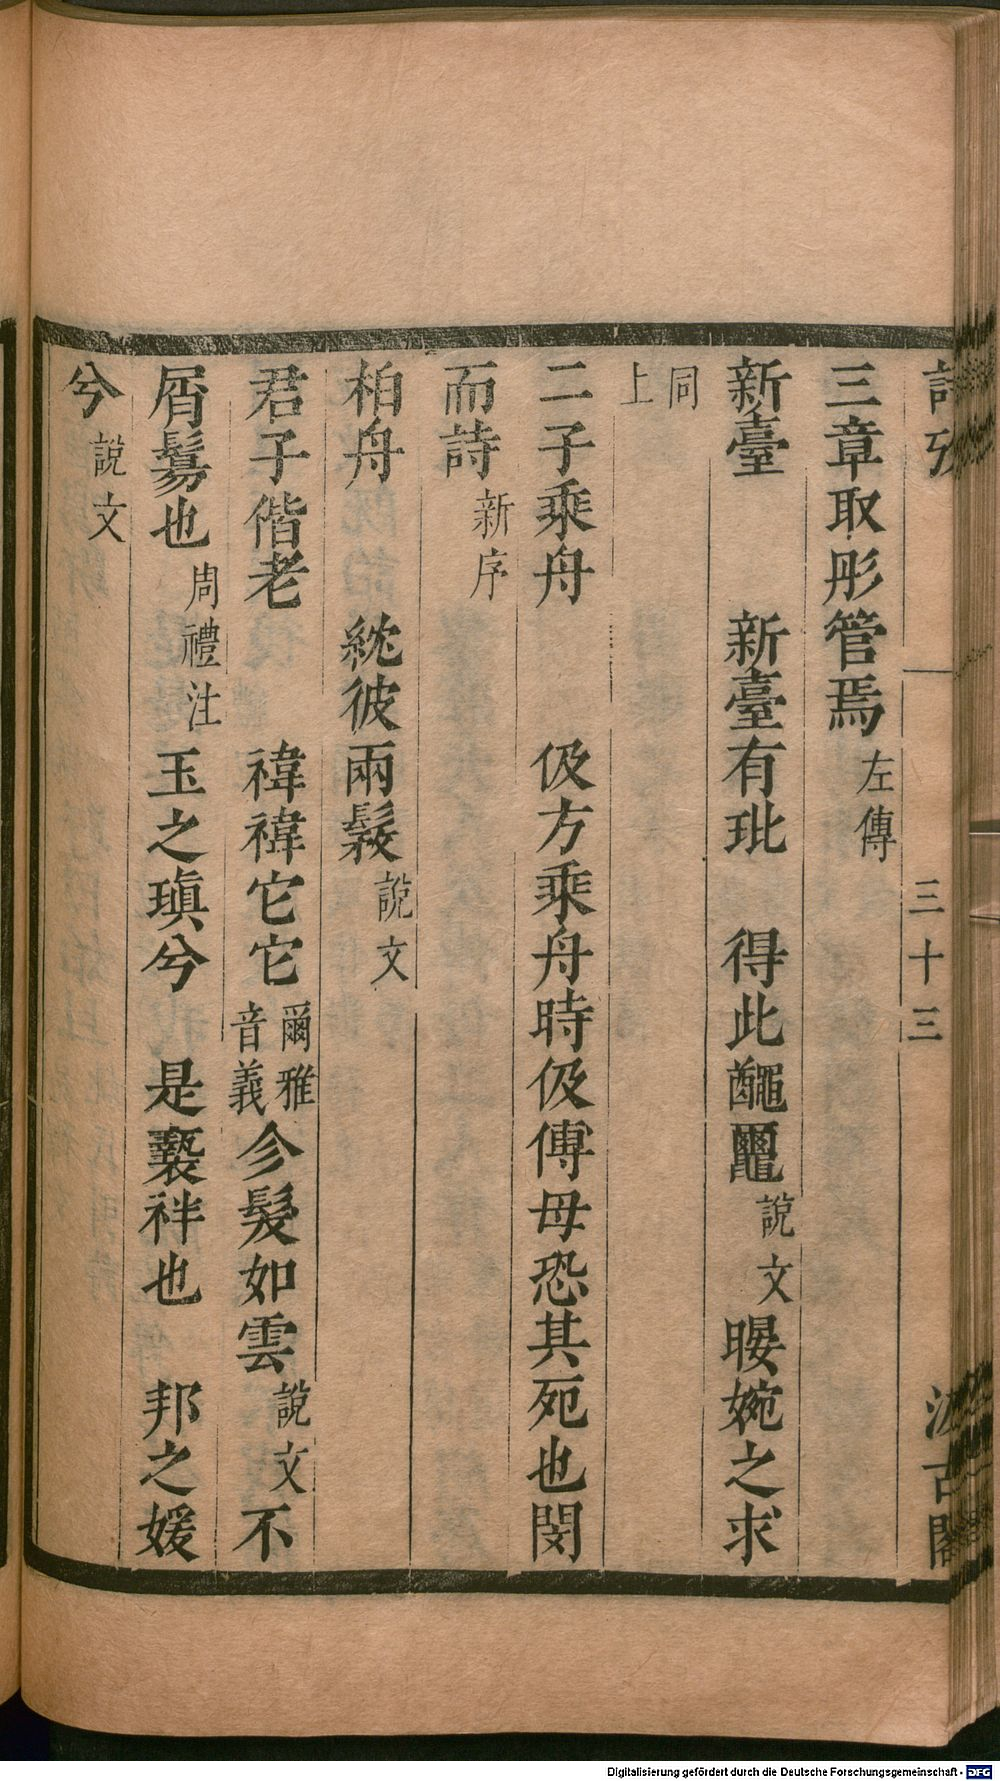 詩攷 三十三 汲古閣
三章取彤管焉左傳
新臺 新臺有玼 得此𪓿𪓰說文㬫婉之求
同上
二子乘舟 伋方乘舟時伋傅母恐其死也閔
而詩新序
柏舟 紞彼兩髮說文
君子偕老 禕禕它它爾雅音義㐱髮如雲說文不
屑鬄也周禮注 玉之瑱兮 是褻袢也 邦之媛
兮說文
Digitalisierung gefördert durch die Deutsche Forschungsgemeinschaft - DFG